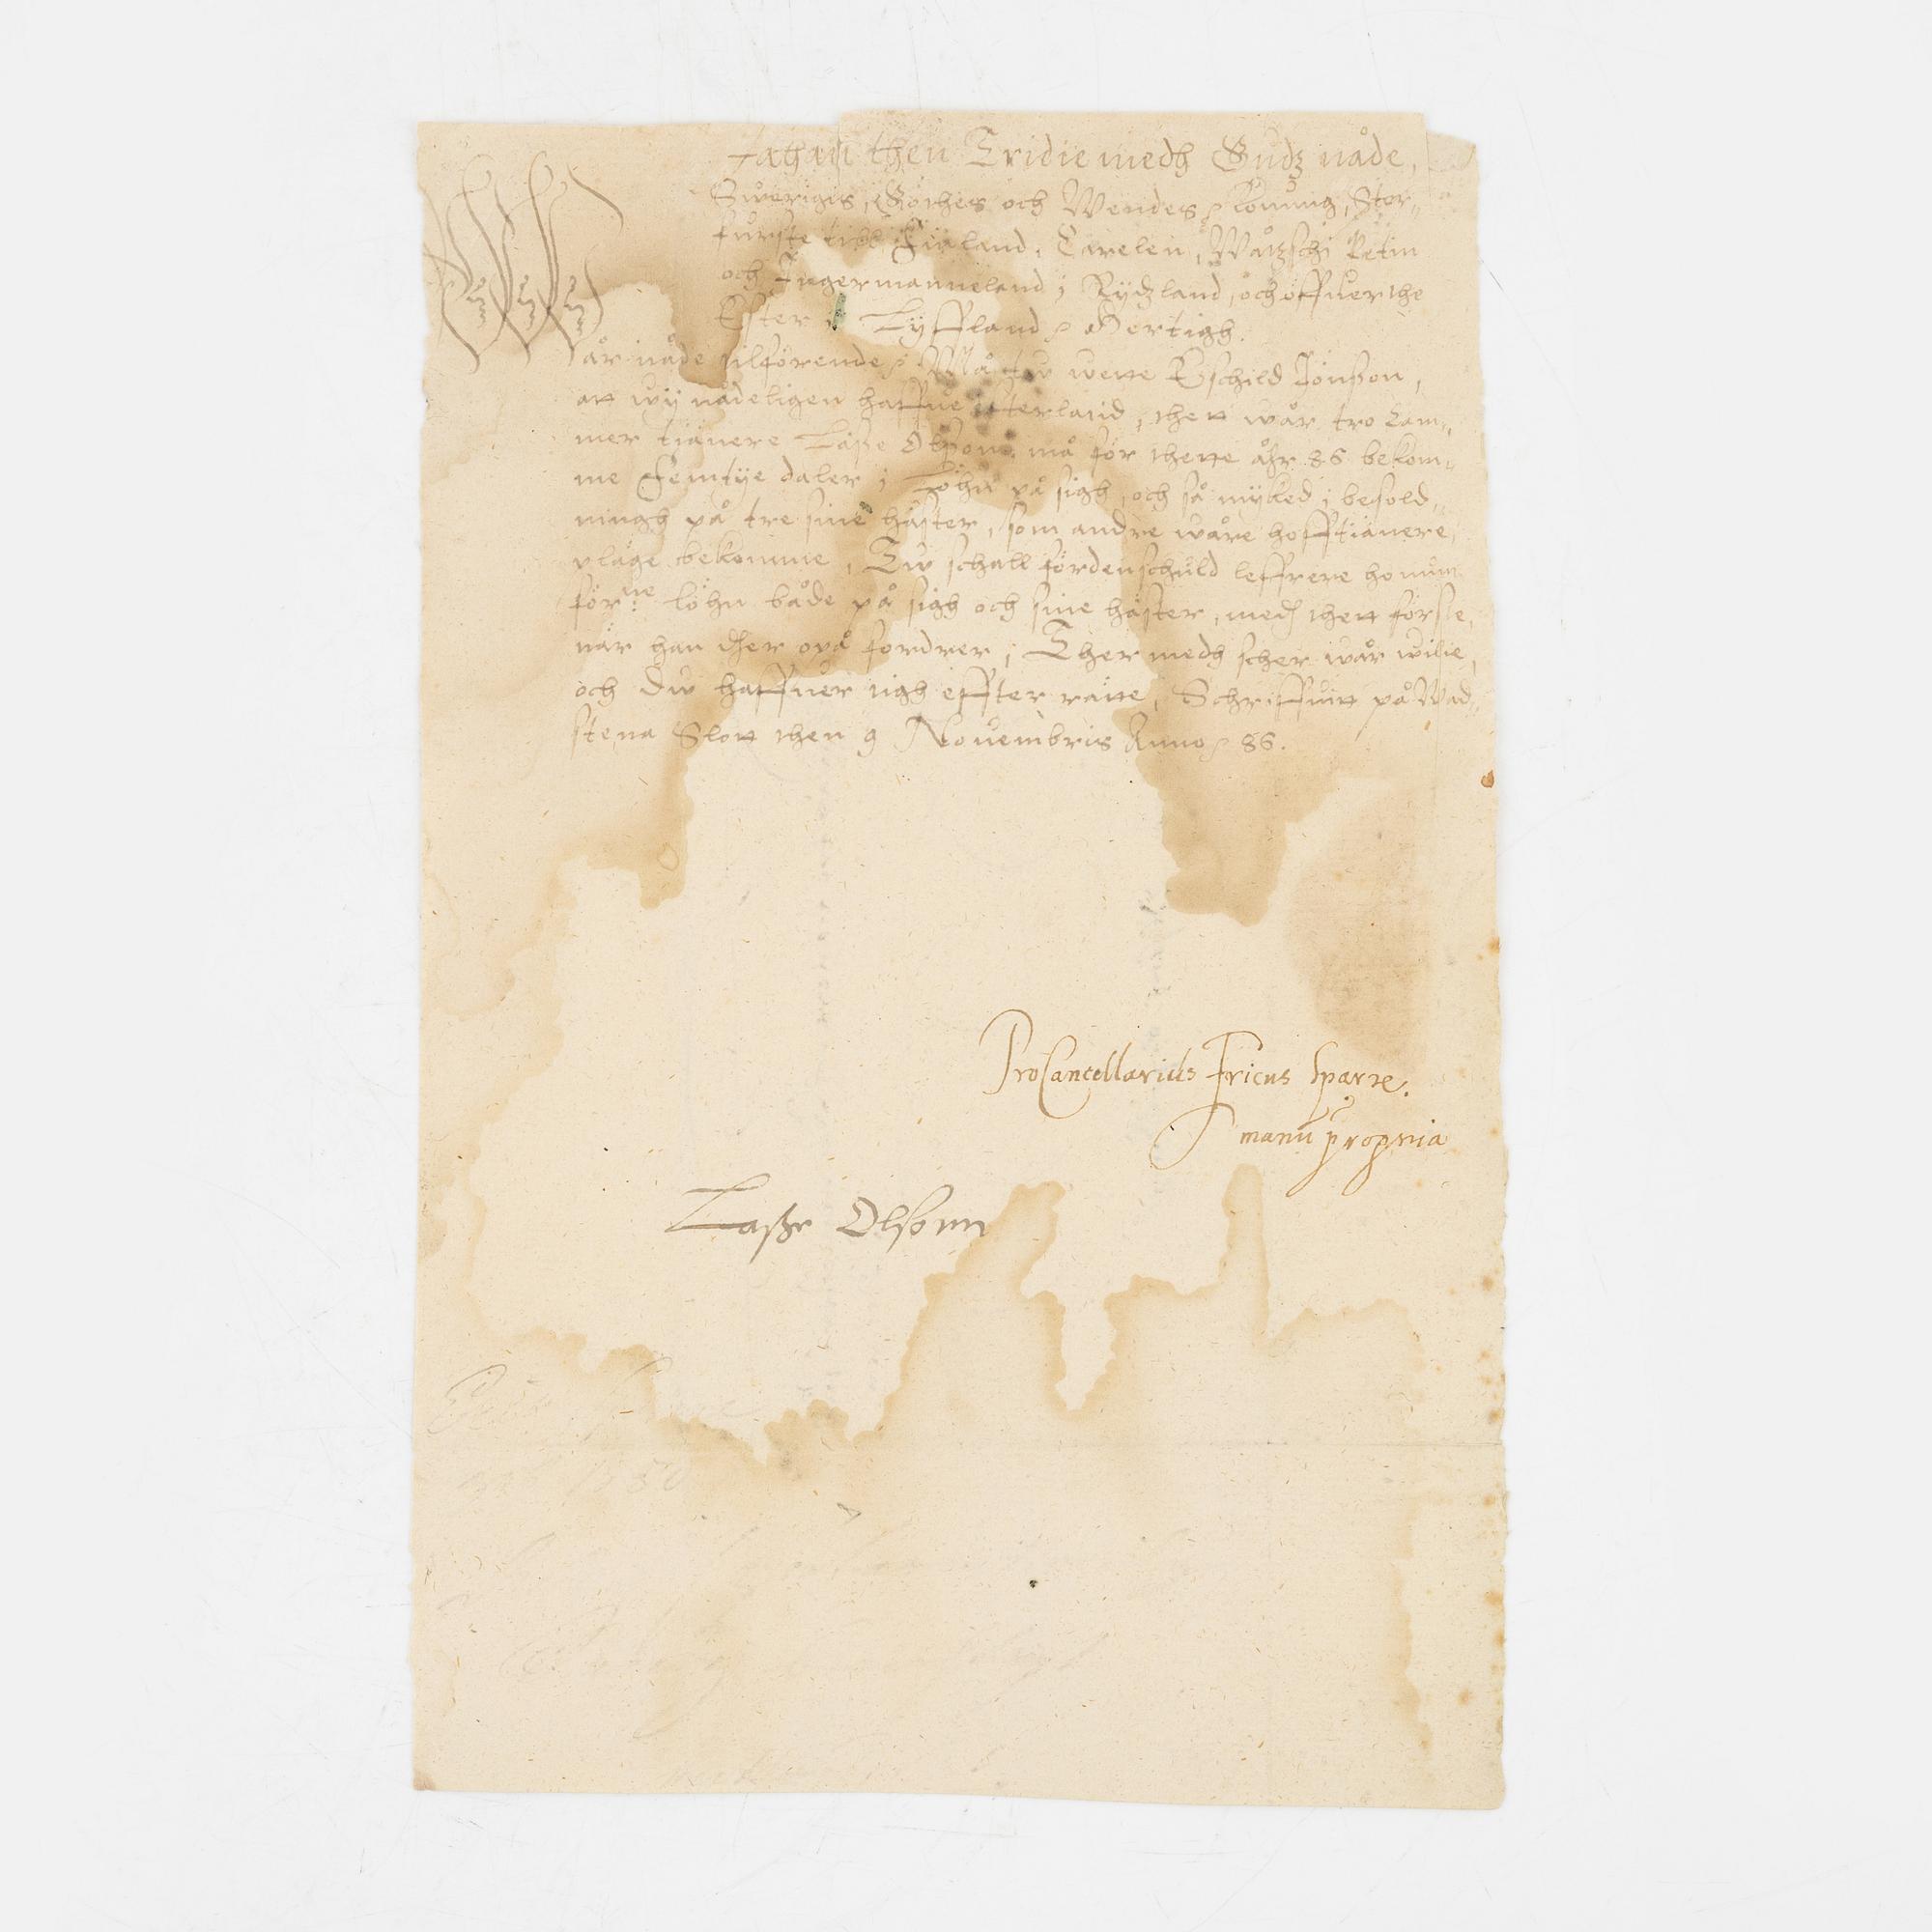 Johan then Tridie medh Gudz nåde,
Swerigis, Göthes och Wendes Konung, Stor„
furste till Finland, Carelen, Wåtzschi Petin
och Ingermanneland i Rydzland, och öffuer the
Ester i Lyffland Hertigh.
Wår nåde tilförende Må tw wette Eschild Jönßon,
att wij nådeligen haffue efterlatid, thett wår tro Cam„
mer tiänere Laße Olßon, må för thette åhr 86 bekom„
me Femtije daler i Löhn på sigh, och så myked i besold„
ningh på tre sine häster, som andre wåre hofftiänere
pläge bekomme, Tw schall fördenschuld leffrere honum
förne: löhn både på sigh och sine häster, medh thett förste,
när han ther opå fordrer, Ther medh scher wår wilie,
och dw haffuer tigh effter rätte, Schriffuitt på Wad„
stena Slott then 9 Novembris Anno 86.
ProCancellarius Ericus Sparre.
manu propria
Laße Olßonn